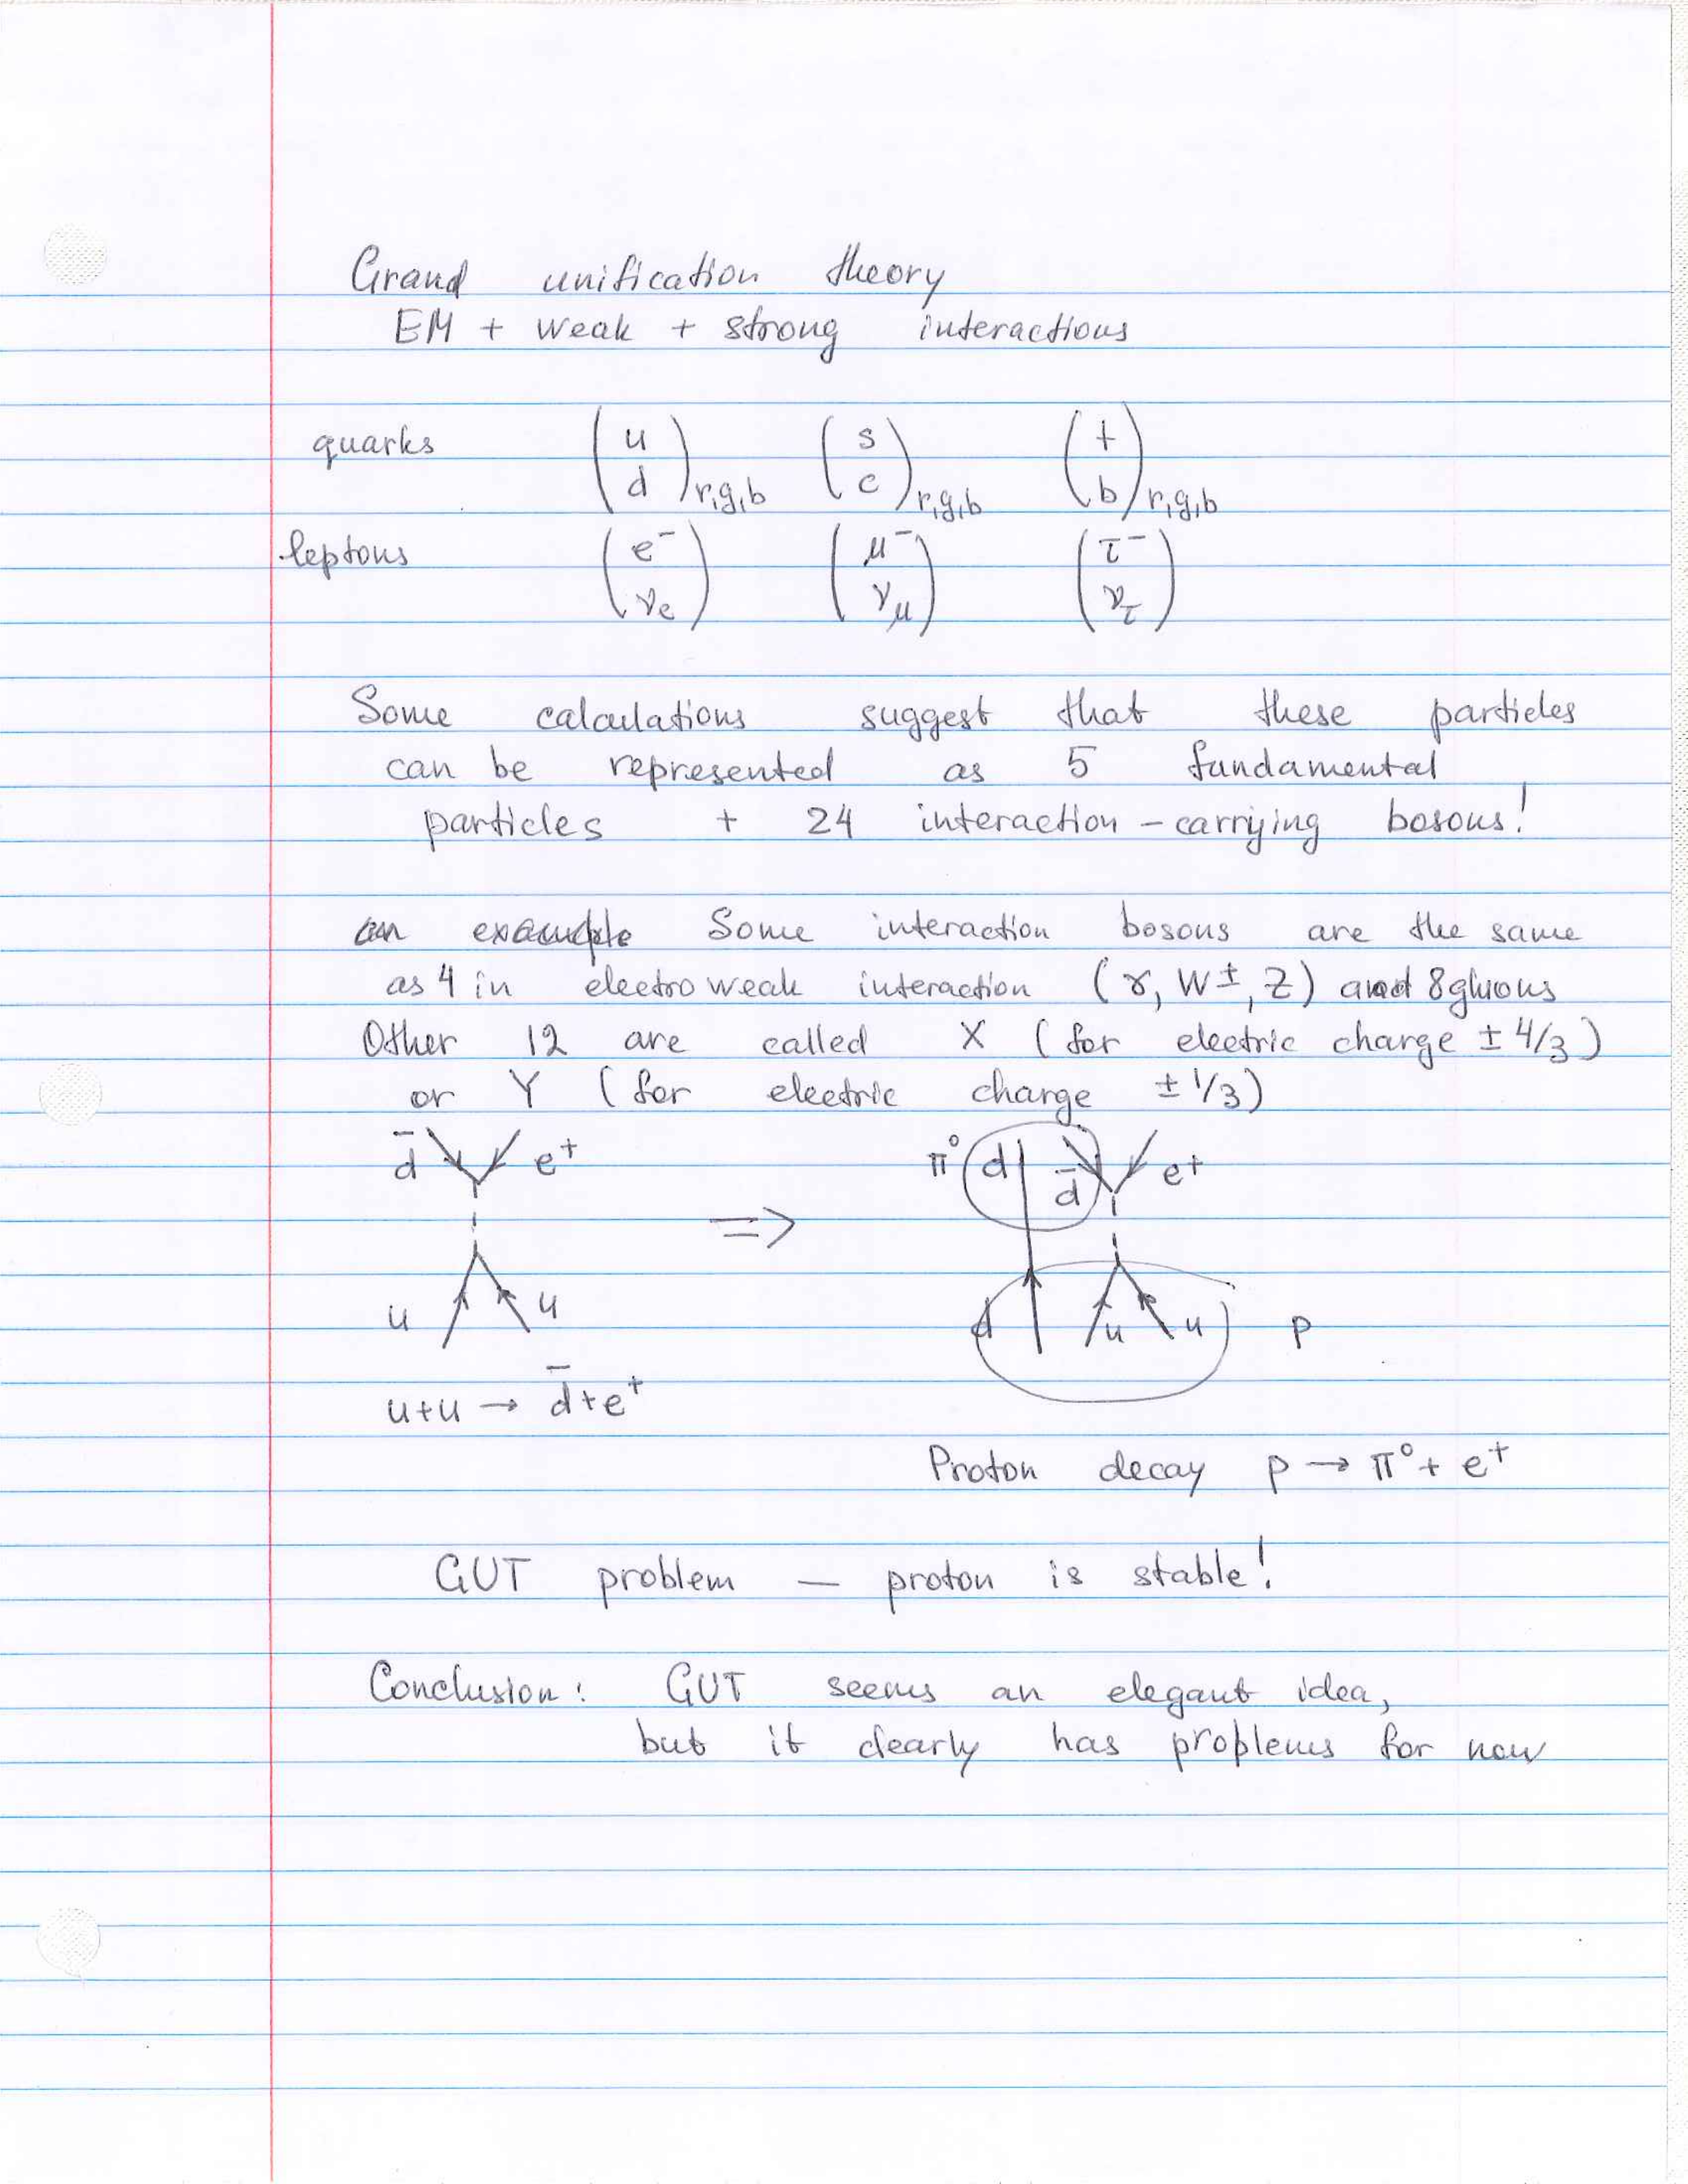 Grand unification theory
EM + weak + strong interactions
quarks (u d)r,g,b (s c)r,g,b (t b)r,g,b
leptons (e⁻ νe) (μ⁻ νμ) (τ⁻ ντ)
Some calculations suggest that these particles
can be represented as 5 fundamental
particles + 24 interaction-carrying bosons!
an example Some interaction bosons are the same
as 4 in electroweak interaction (γ, W±, Z) and 8 gluons
Other 12 are called X (for electric charge ± 4/3)
or Y (for electric charge ± 1/3)
d̄ e⁺ π⁰ d d̄ e⁺
=>
u u d u u p
u+u → d̄+e⁺
Proton decay p → π⁰ + e⁺
GUT problem — proton is stable!
Conclusion: GUT seems an elegant idea,
but it clearly has problems for now